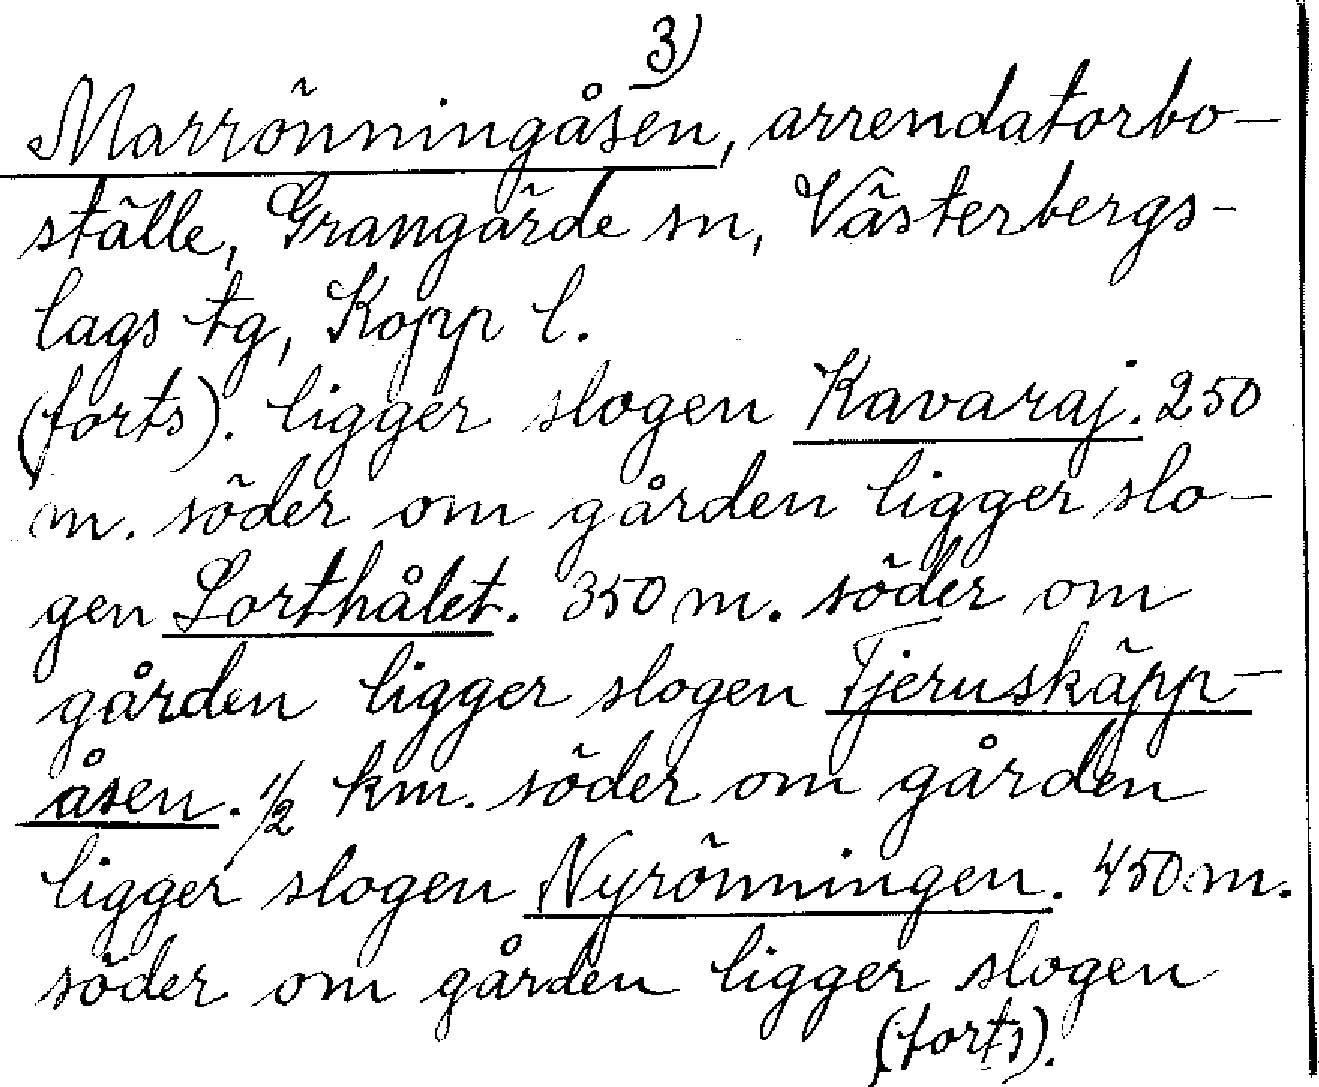 3)
Marrönningåsen, arrendatorbo-
ställe, Grangärde sn, Västerbergs-
lags tg, Kopp l.
(forts). ligger slogen Kavaraj. 250
m. söder om gården ligger slo-
gen Lorthålet. 350 m. söder om
gården ligger slogen Tjeruskäpp-
åsen. 1/2 km. söder om gården
ligger slogen Nyrönningen. 450 m.
söder om gården ligger slogen
(forts).